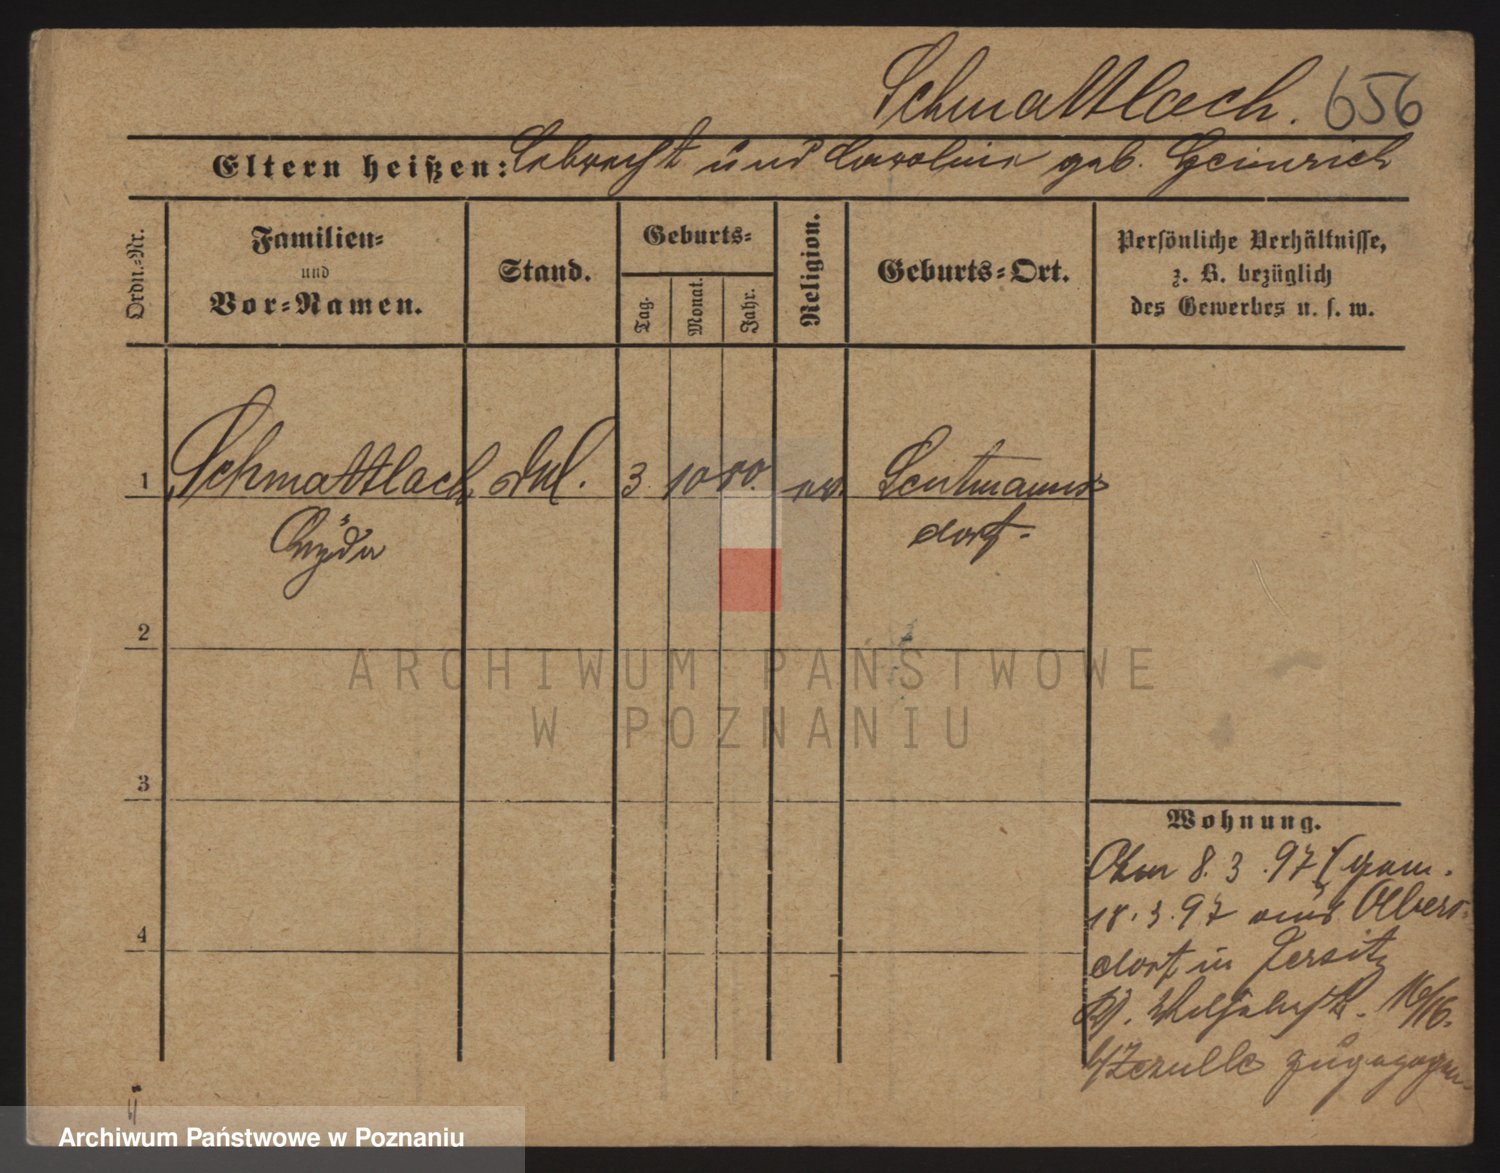 Schmattloch. 656
Eltern heißen: Lebrecht und Caroline geb. Heinrich
Ordn.-Nr.
Familien-
und
Vor-Namen.
Stand.
Geburts-
Tag.
Monat.
Jahr.
Religion.
Geburts-Ort.
Persönliche Verhältnisse,
z. B. bezüglich
des Gewerbes u. s. w.
1 Schmattloch 3. 10 80. ev. Lentmanns
dorf.
2
3
4
Wohnung.
Am 8.3.97 (gem.
18.3.97 aus Albers-
dorf in Jersitz
16/16.
zugezogen
ARCHIWUM PAŃSTWOWE
W POZNANIU
Archiwum Państwowe w Poznaniu